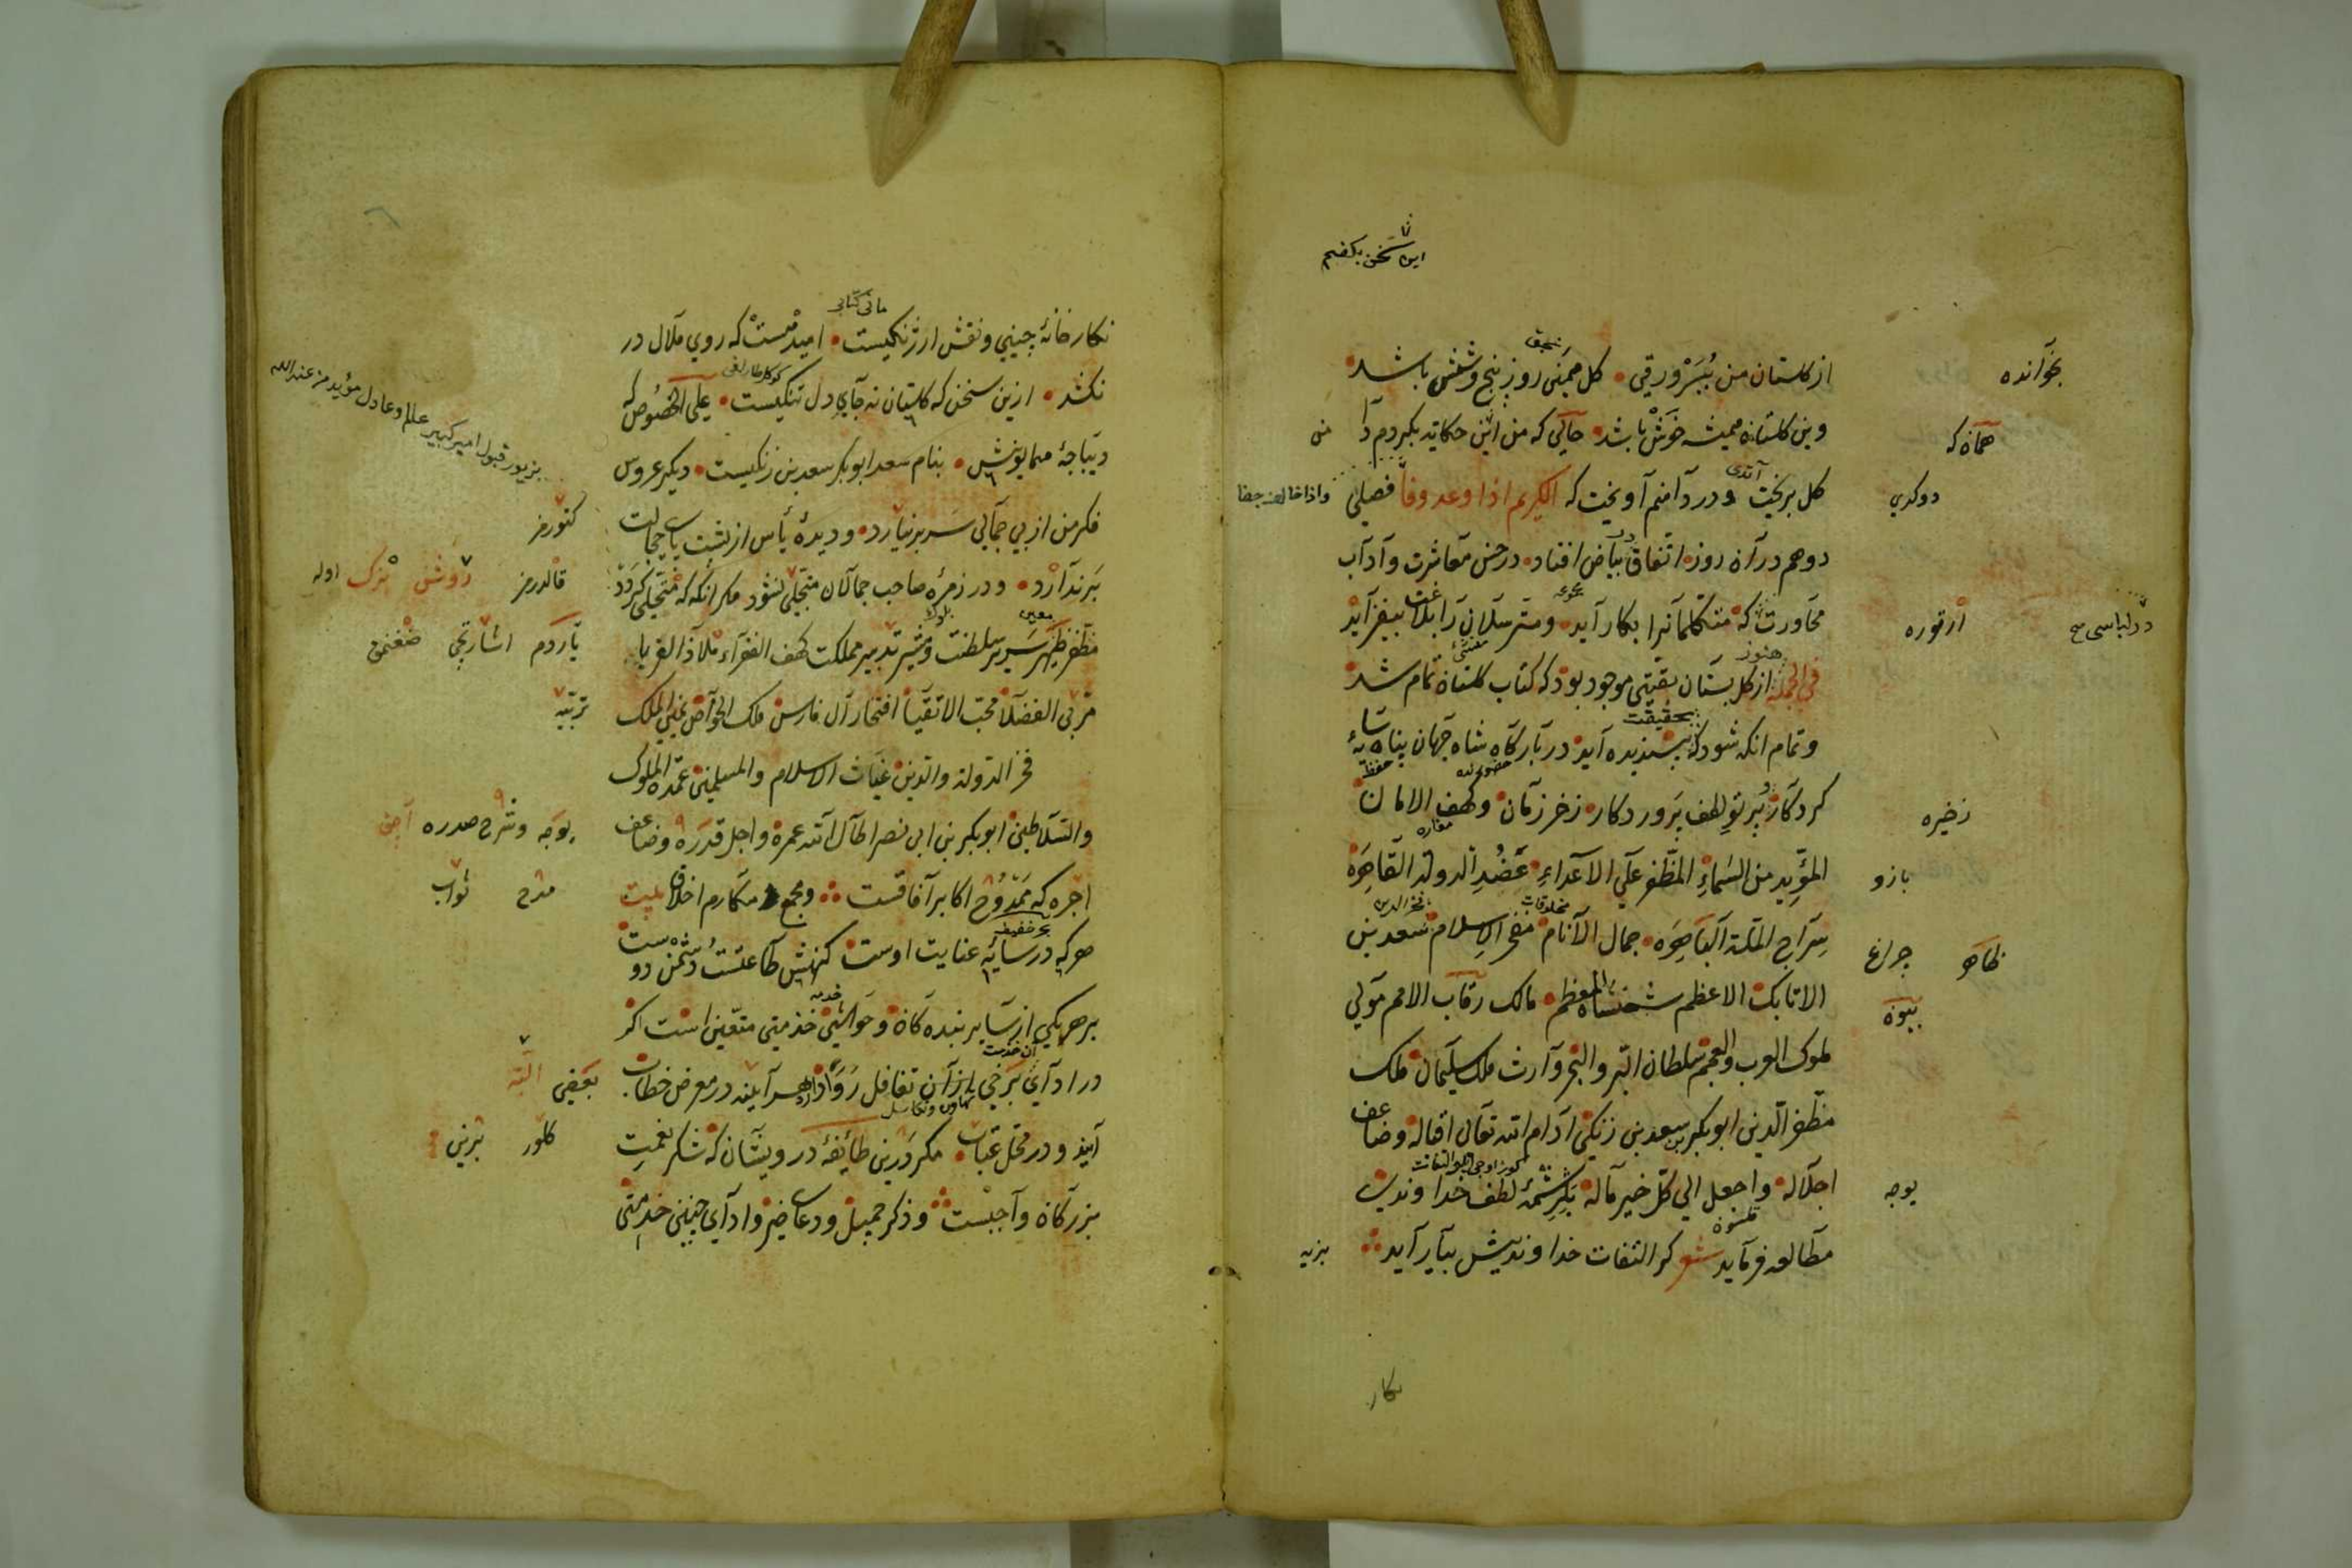 این سخن بکفتم
از کلستان من ببر ورقی کل همین روز پنج و شش باشد
بخوانده
وین کلستان همیشه خوش باشد حالی که من این حکایة بکردم دا
من
همان که
کل بریخت و در دامنم آویخت که الکریم اذا وعد وفا فصلی
دو کدی
دو هم در آن روز اتفاق بیاض افتاد در حسن معاشرت و آداب
محاورت که متکلمانرا بکار آید و مترسلانرا بلاغت بیفزاید
فی الجمله از کل بستان بقیتی موجود بود که کتاب کلستان تمام شد
هنوز
و تمام انکه شود که پسندیده آید در بارکاه شاه جهان پناه سایهٔ
بحقیقت
کردکار پرتو لطف پروردکار ذخر زمان و کهف الامان
ذخیره
المؤید من السماء المظفر علی الاعداء عضد الدولة القاهره
بازو
سراج الملة الباهره جمال الانام مفخر الاسلام سعد بن
ظاهر
چراغ
الاتابک الاعظم شهنشاه المعظم مالک رقاب الامم مولی
ملوک العرب والعجم سلطان البر والبحر وارث ملک سلیمان ملک
مظفر الدین ابو بکر بن سعد بن زنکی ادام الله تعالی اقباله وضاعف
اجلاله واجعل الی کل خیر مآله بکرشمهٔ لطف خداوندی
مطالعه فرماید شعر کر التفات خداوندیش بیاراید
نکار
نکارخانهٔ چینی و نقش ارژنکیست امید هست که روی ملال در
مانی کتابی
نکشد ازین سخن که کلستان نه جای دل تنکیست علی الخصوص که
دیباجهٔ همایونش بنام سعد ابو بکر سعد بن زنکیست دیکر عروس
بزیور قبول امیر کبیر عالم و عادل مؤید من عند الله
فکر من از بی جمالی سر بر نیارد و دیدهٔ یأس از پشت پای خجالت
کتورمز
بر ندارد و در زمرهٔ صاحب جمالان متجلی نشود مکر انکه که متحلی کردد
قالدرمز
مظفر ظهیر سریر سلطنت و مشیر تدبیر مملکت کهف الفقراء ملاذ الغربا
معین
یاردم
مربی الفضلا محب الاتقیا افتخار آل فارس ملک الخواص یمین الملک
تربیه
فخر الدولة والدین غیاث الاسلام والمسلمین عمدة الملوک
والسلاطین ابو بکر بن ابی نصر اطال الله عمره واجل قدره وضاعف
وشرح صدره
اجره که ممدوح اکابر آفاقست ومجمع مکارم اخلاق بیت
مدح
ثواب
هر که در سایهٔ عنایت اوست کنهش طاعتست و دشمن دوست
بر هر یکی از سایر بنده کان و حواشی خدمتی متعین است اکر
در ادای برخی از آن تغافل روا دارند هر آینه در معرض خطاب
بعضی
البته
آیند و در محل عتاب مکر درین طائفهٔ درویشان که شکر نعمت
کلور
بزرکان واجبست و ذکر جمیل و دعای خیر و ادای چنین خدمتی